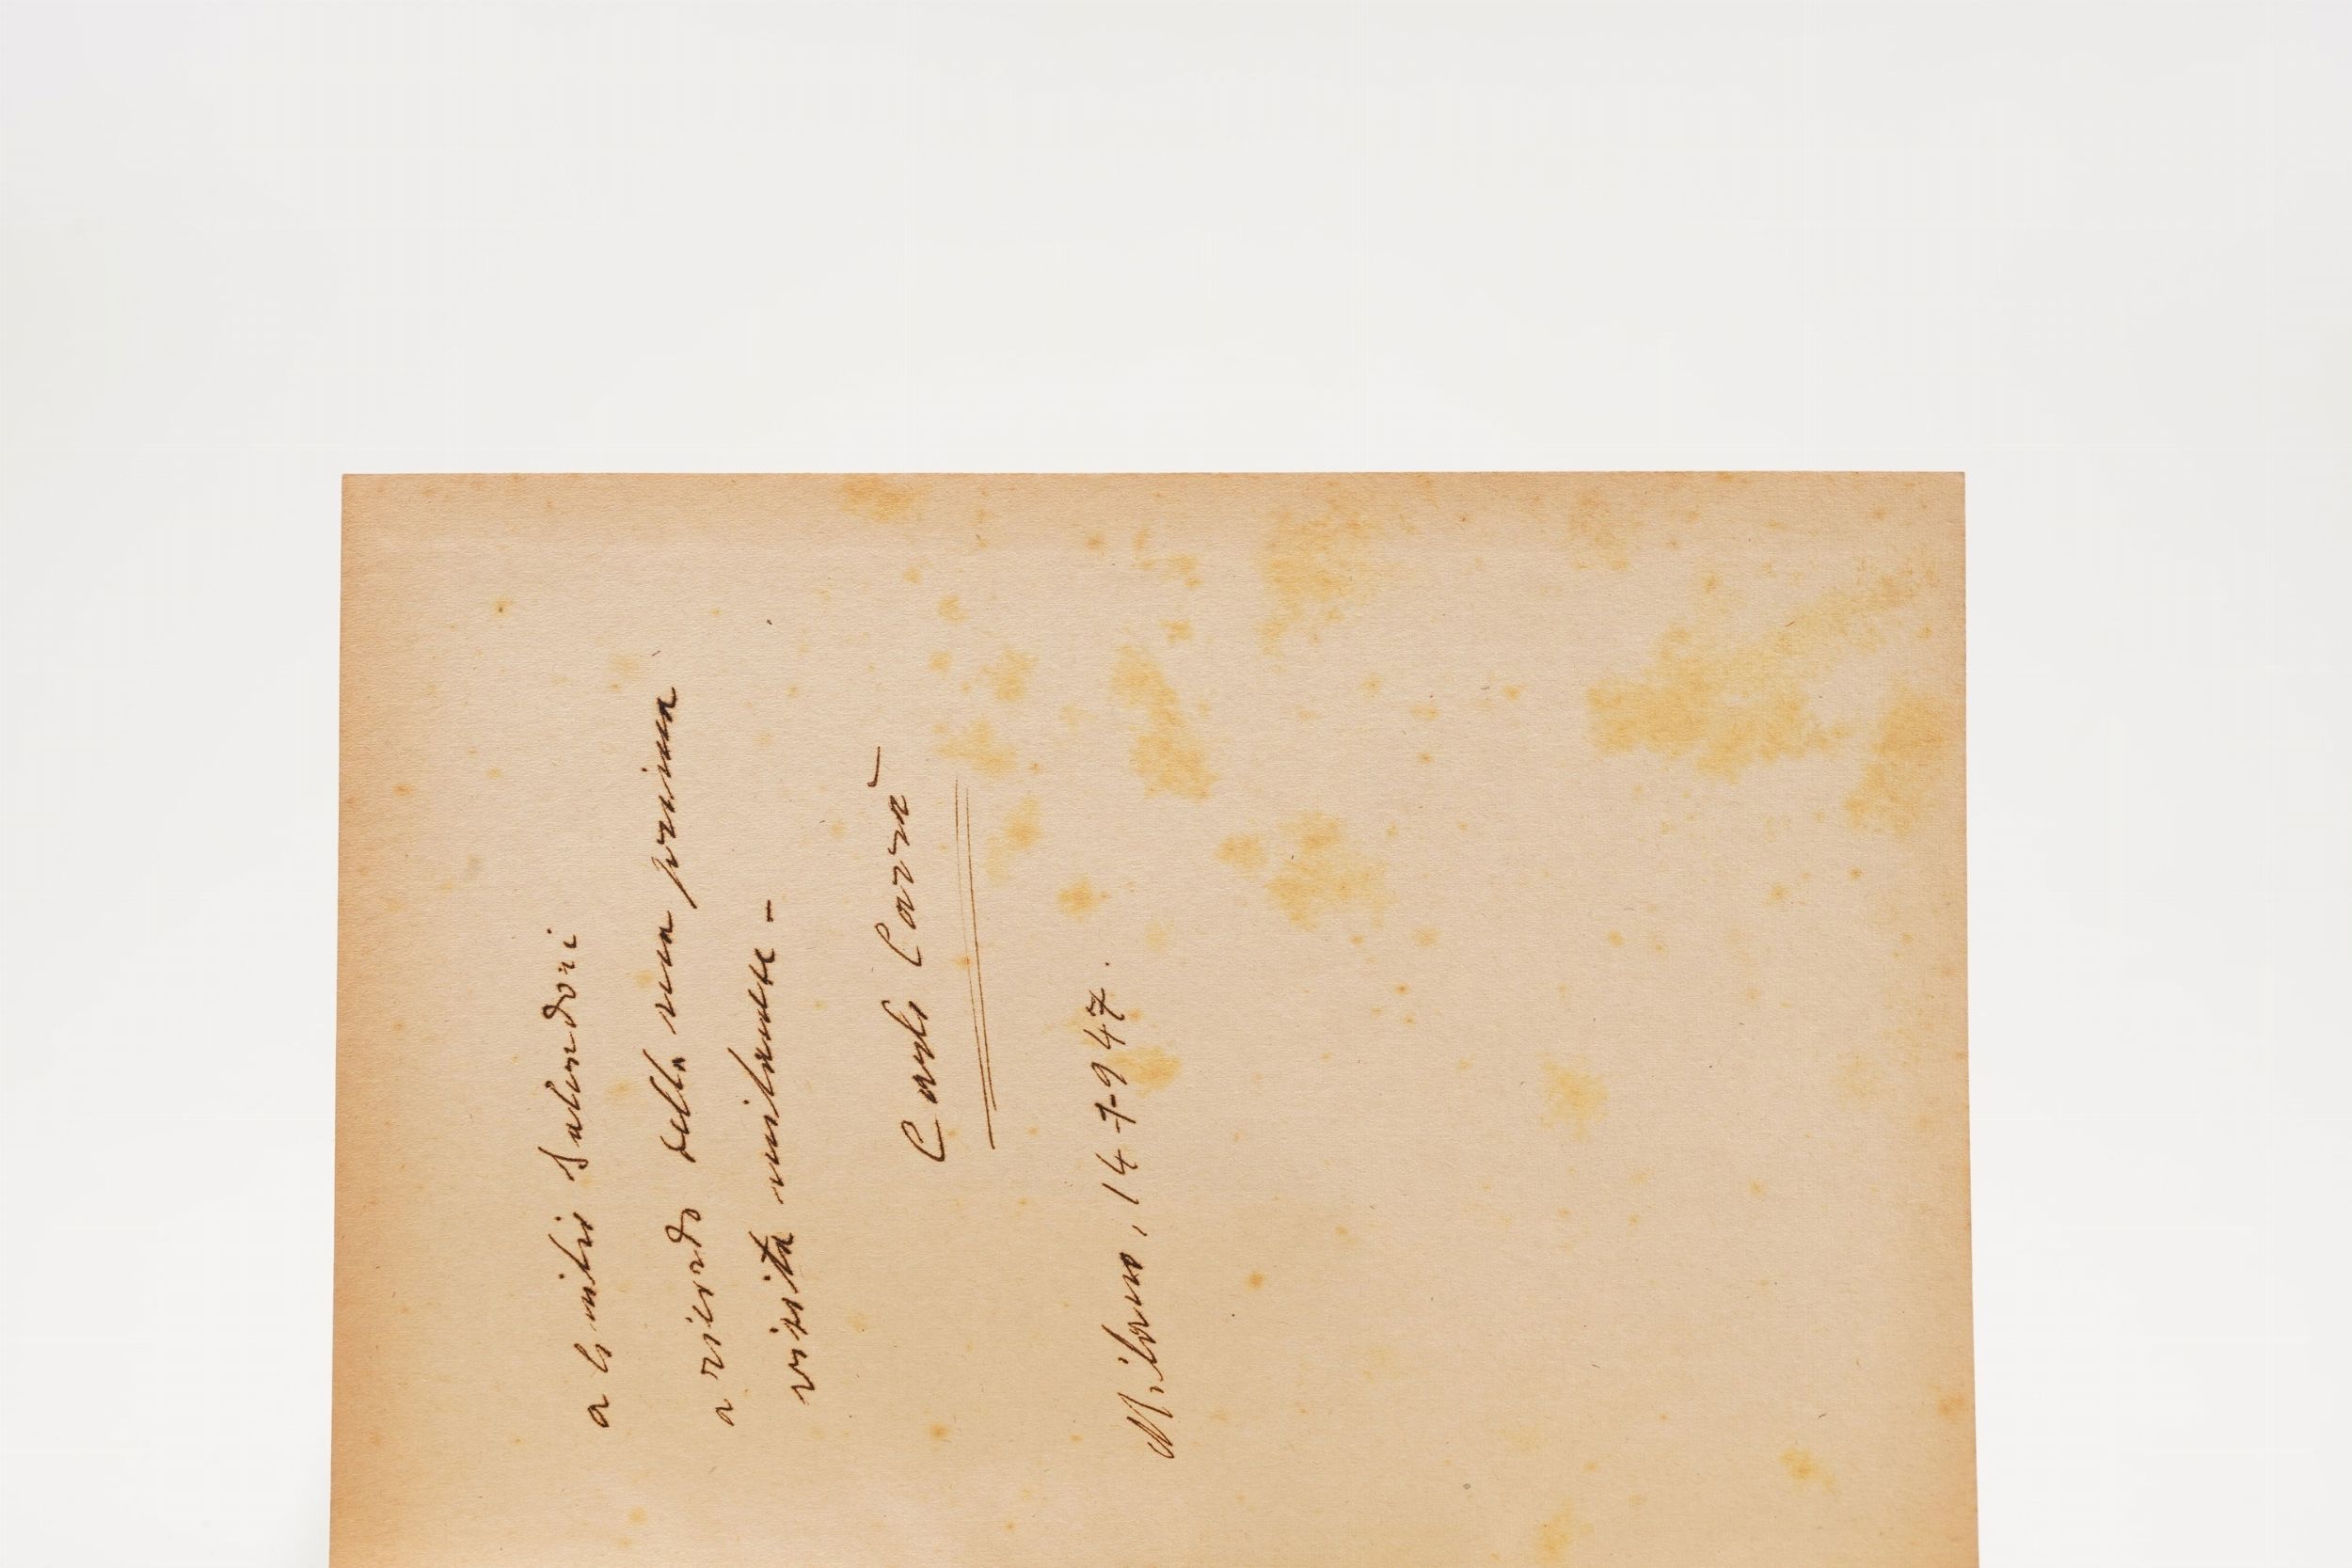 a Lo mitis Salvadori
a ricordo della sua prima
visita milanese -
Carlo Carrà
Milano, 14-7-947.